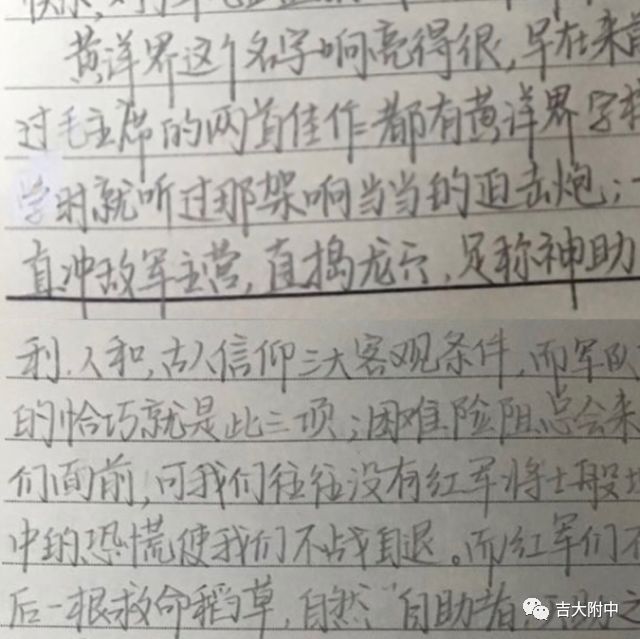 黄洋界这个名字响亮得很,早在来
过毛主席的两首佳作都有黄洋界字
学时就听过那架响当当的迫击炮;
直冲敌军主营,直捣龙穴,足称神助
利、人和,古人信仰三大客观条件,而军队
的恰巧就是此三项;困难险阻总会来
们面前,可我们往往没有红军将士般
中的恐慌使我们不战自退。而红军们不
后一根救命稻草,自然“自助者
吉大附中